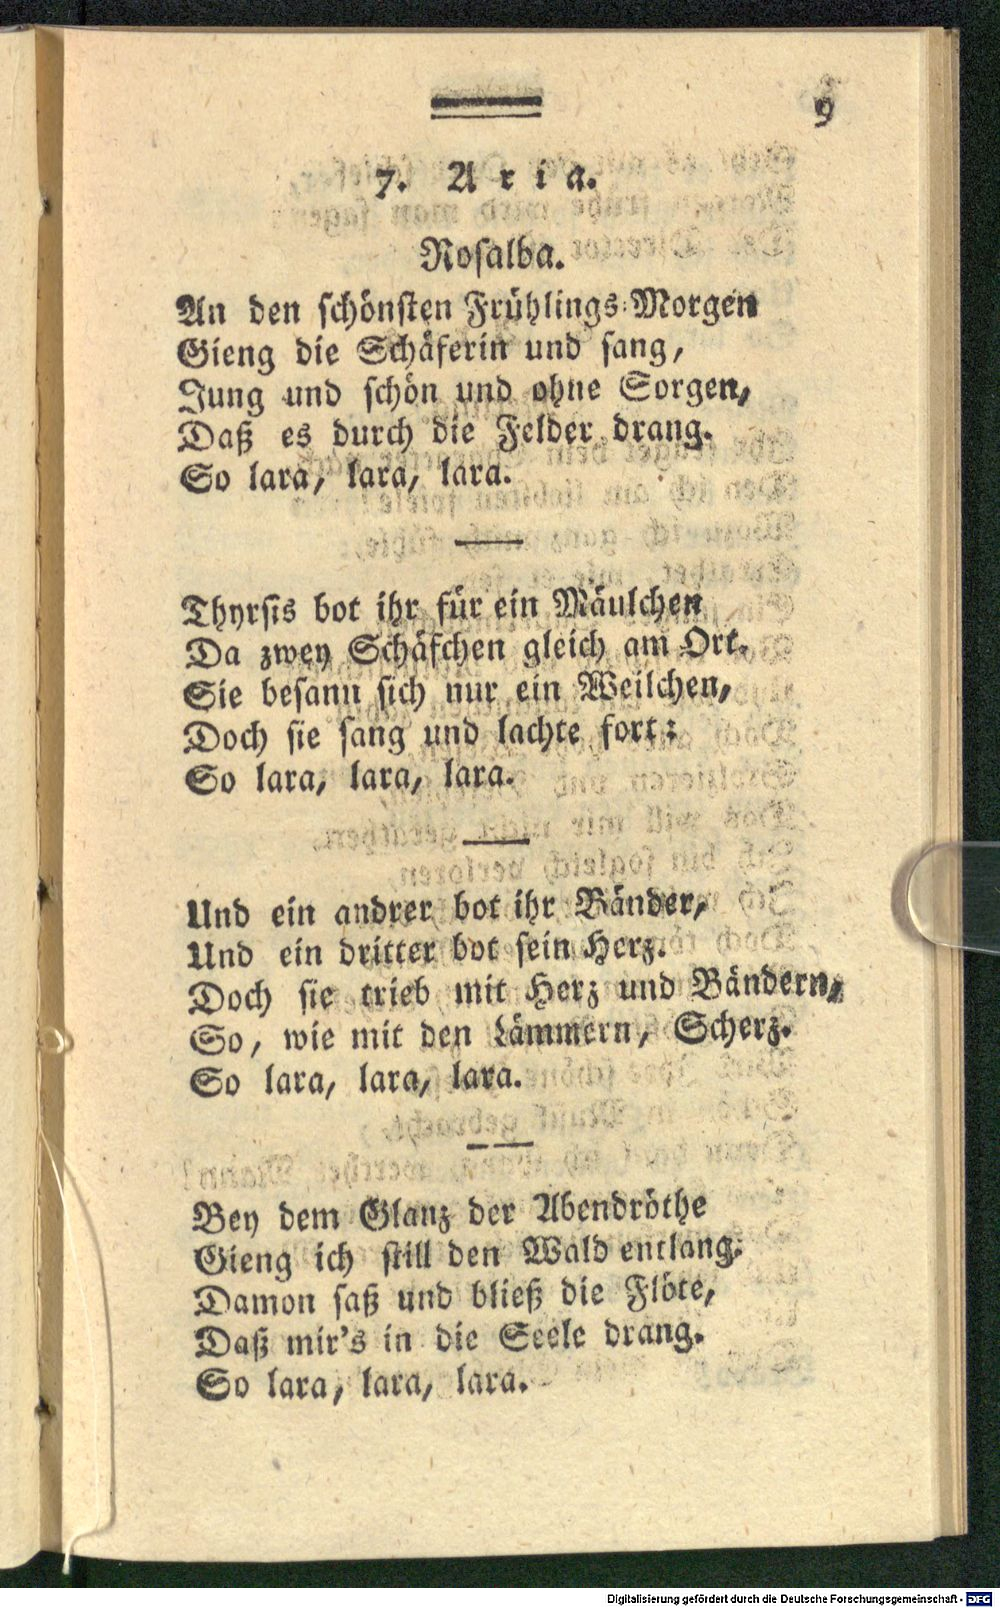 9
7. Aria.
Rosalba.
An den schönsten Frühlings-Morgen
Gieng die Schäferin und sang,
Jung und schön und ohne Sorgen,
Daß es durch die Felder drang.
So lara, lara, lara.
Thyrsis bot ihr für ein Mäulchen
Da zwey Schäfchen gleich am Ort.
Sie besann sich nur ein Weilchen,
Doch sie sang und lachte fort:
So lara, lara, lara.
Und ein andrer bot ihr Bänder,
Und ein dritter bot sein Herz.
Doch sie trieb mit Herz und Bändern,
So, wie mit den Lämmern, Scherz.
So lara, lara, lara.
Bey dem Glanz der Abendröthe
Gieng ich still den Wald entlang:
Damon saß und bließ die Flöte,
Daß mir's in die Seele drang.
So lara, lara, lara.
Digitalisierung gefördert durch die Deutsche Forschungsgemeinschaft - DFG